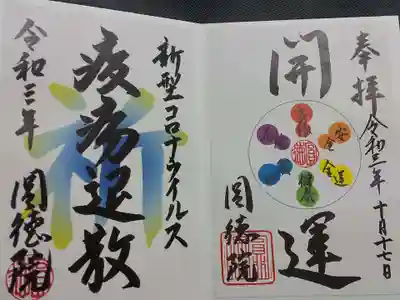 奉拝
令和三年
十月十七日
開運
安全
圓徳院
新型コロナウイルス
疫病退散
祈
令和三年
圓徳院